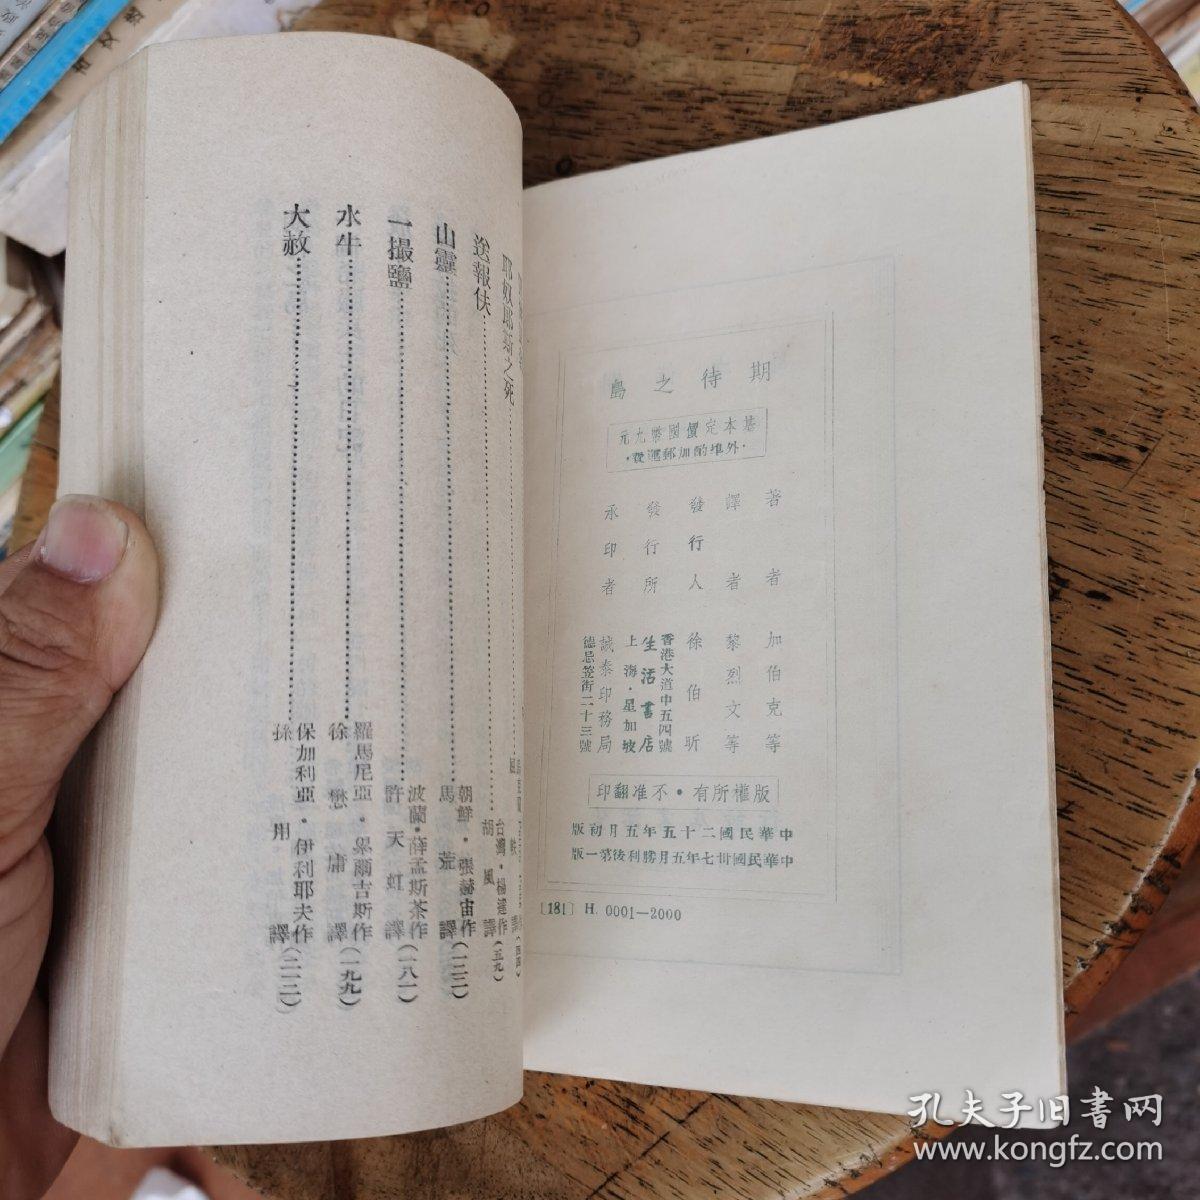 期待之島
基本定價國幣九元
·外埠酌加郵運費·
著者 加伯克等
譯者 黎烈文等
發行人 徐伯昕
發行所 生活書店
香港大道中五四號
上海·星加坡
承印者 誠泰印務局
德忌笠街二十三號
版權所有·不准翻印
中華民國二十五年五月初版
中華民國卅七年五月勝利後第一版
[181] H. 0001—2000
耶奴郎斯之死
送報伕 台灣·楊逵作 胡風譯(五九)
山靈 朝鮮·張赫宙作 馬荒譯(一二二)
一撮鹽 波蘭·薛孟斯茶作 許天虹譯(一八一)
水牛 羅馬尼亞·皋爾吉斯作 徐懋庸譯(一九九)
大赦 保加利亞·伊利耶夫作 孫用譯(二二二)
孔夫子旧書网
www.kongfz.com